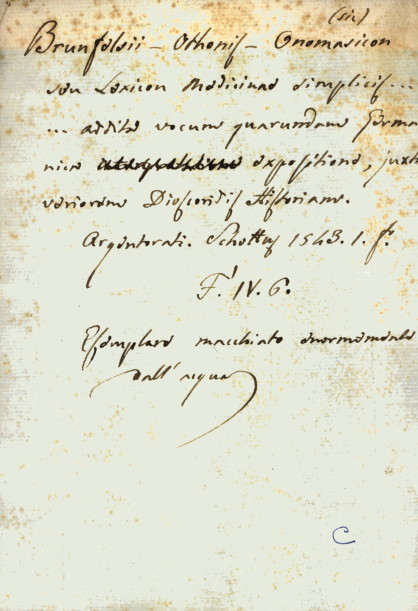 (sic)
Brunfelsii – Othonis – Onomasicon
seu Lexicon Medicinae simplicis...
... addita vocum quarumdam Germa
nica expositione, juxta
veriorem Dioscoridis Historiam.
Argentorati. Schottus 1543. 1. f.º
F.' IV. 6.
Esemplare macchiato enormemente
dall' acqua
C